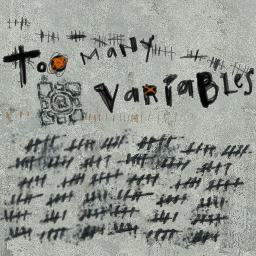 Too MaNY
VaRIaBLES